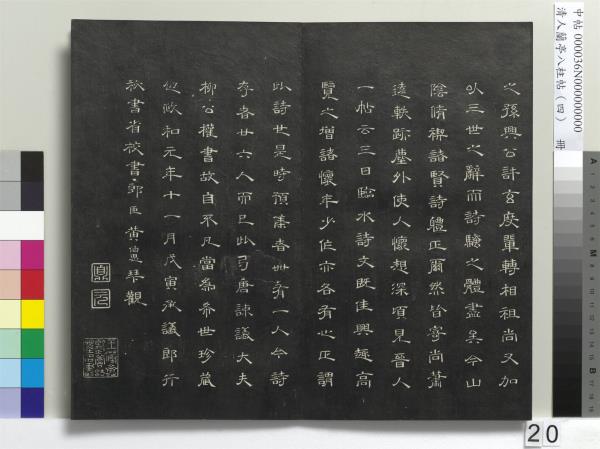 中帖 000036N000000000
清人蘭亭八柱帖（四） 冊
之孫興公許玄度輩轉相祖尚又加
以三世之辭而詩騷之體盡矣今山
陰脩禊諸賢詩體正爾然皆寄尚蕭
遠軼跡塵外使人懷想深頃見晉人
一帖云三日臨水詩文既佳興趣高
覽之增諸懷年少作亦各有心正謂
此詩也是時預集者卌有一人今詩
存者廿六人而已此乃唐諫議大夫
柳公權書故自不凡當為希世珍藏
也政和元年十一月戊寅承議郎行
秘書省校書郎臣黃觀
20